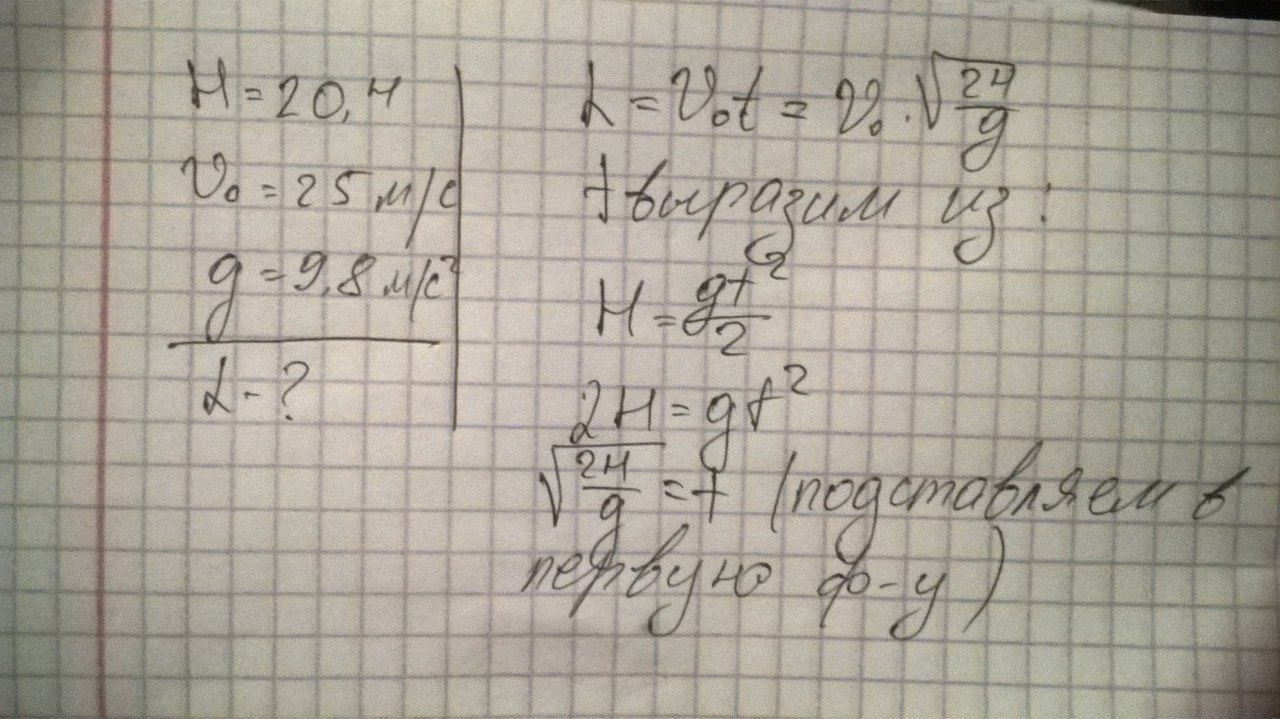 H = 20,4
v₀ = 25 м/с
g = 9,8 м/с²
L - ?
L = v₀t = v₀ · √(2H/g)
t выразим из :
H = gt²/2
2H = gt²
√(2H/g) = t (подставляем в
первую ф-у)